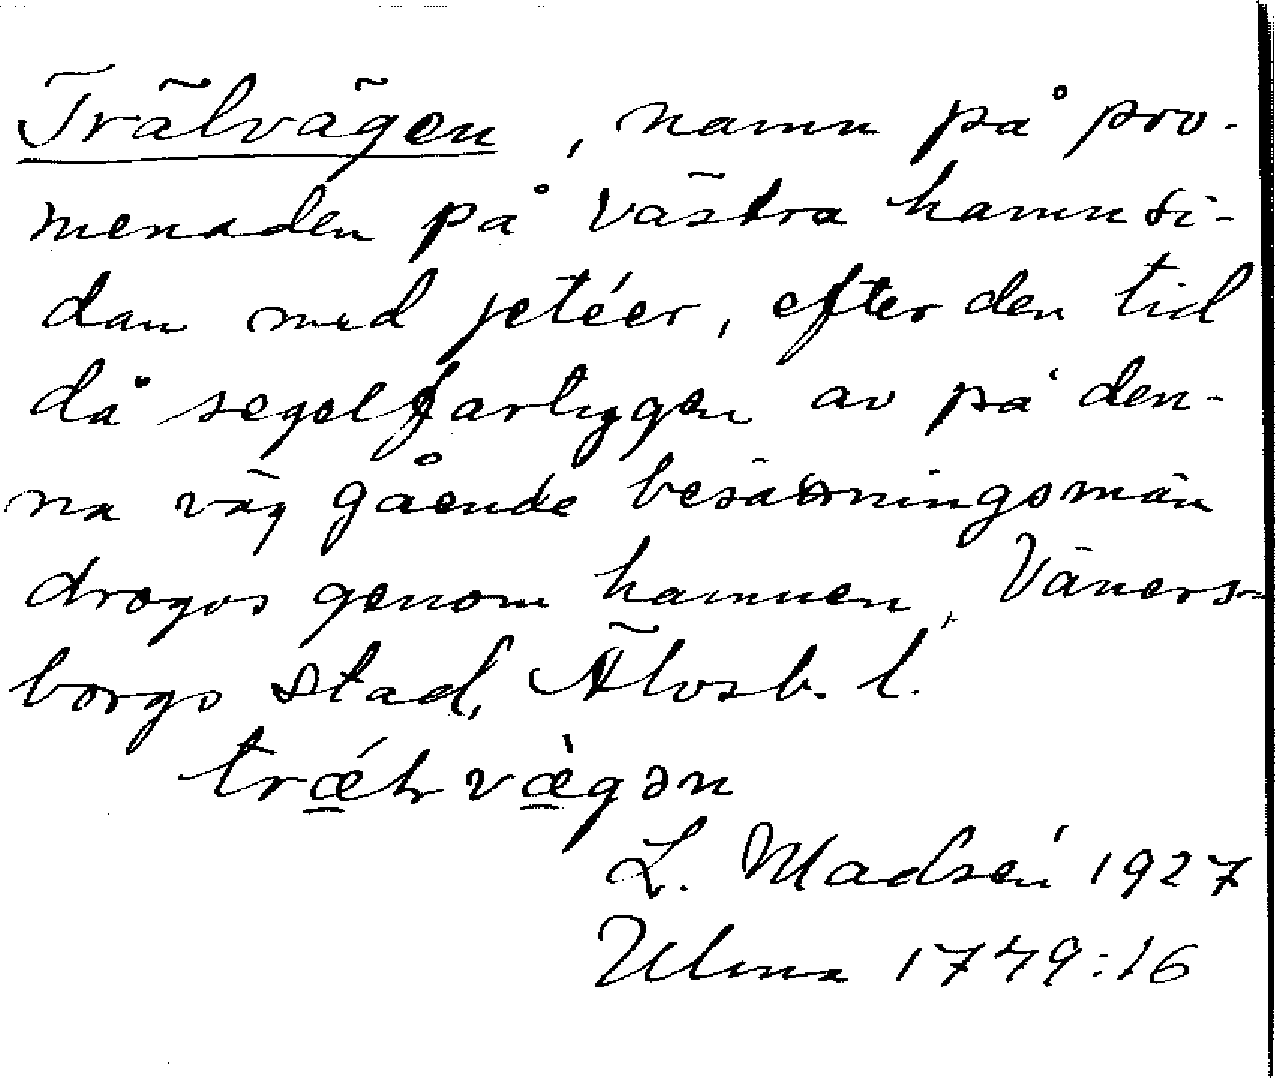 Trälvägen, namn på pro-
menaden på västra hamnsi-
dan med jetéer, efter den tid
då segelfartygen av på den-
na väg gående besättningsmän
drogos genom hamnen. Väners-
borgs stad, Älvsb. l.
L. Madsén 1927
Ulma 1749:16